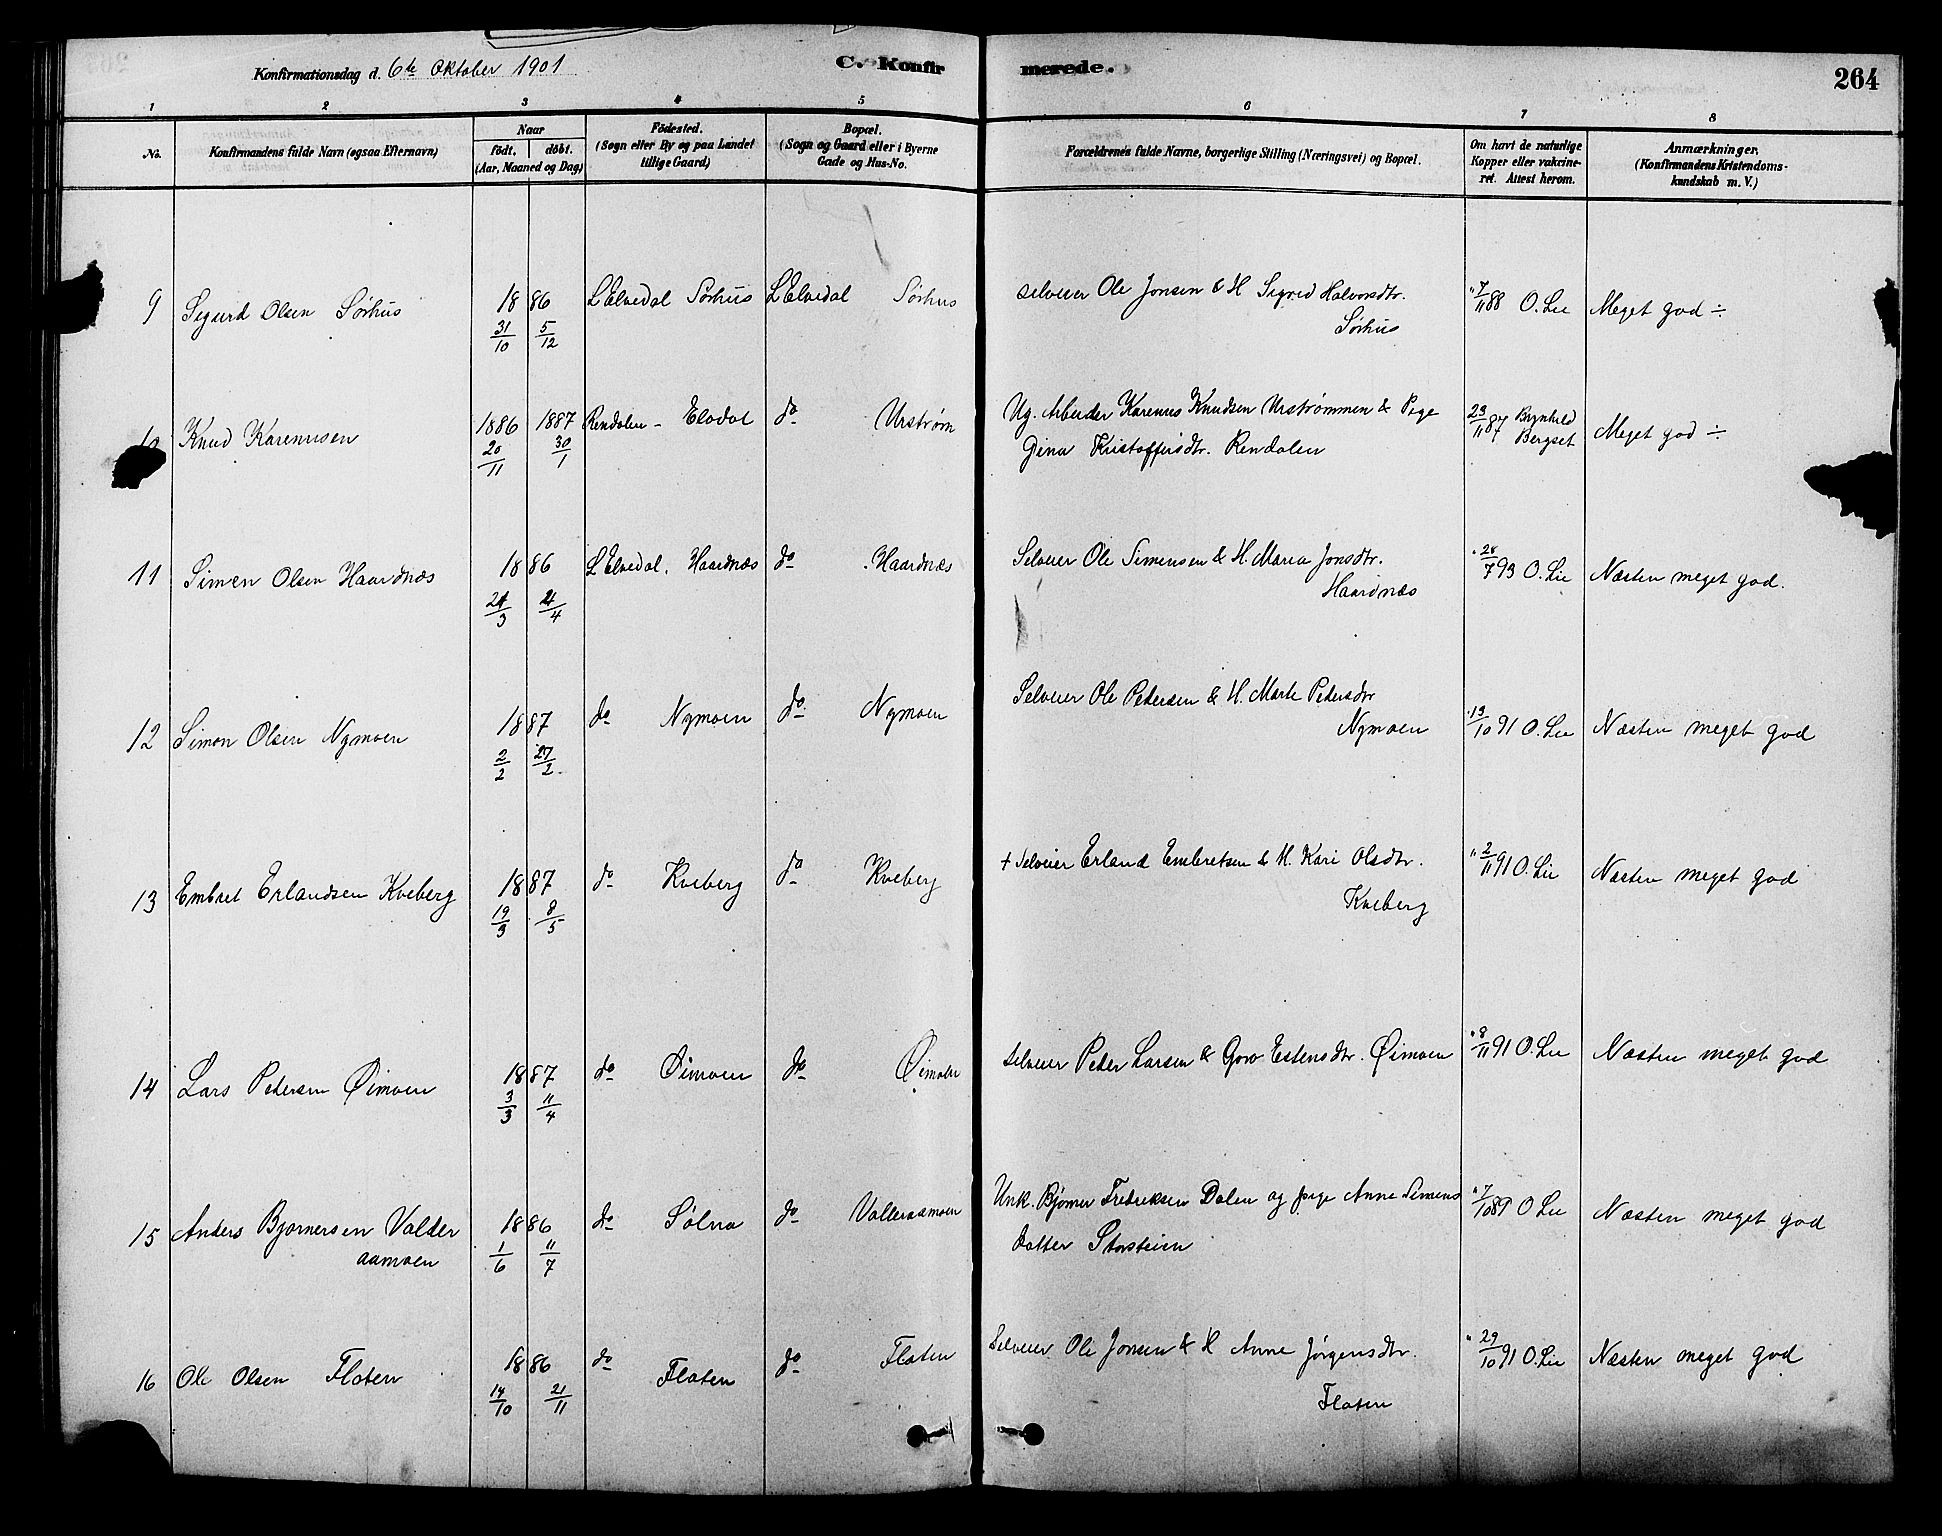 Konfirmationsdag d. 6te Oktober 1901
C. Konfirmerede.
264
1 2 3 4 5 6 7 8
No.
Konfirmandens fulde Navn (ogsaa Efternavn)
Naar
födt. döbt.
(Aar, Maaned og Dag)
Födested.
(Sogn eller By og paa Landet
tillige Gaard)
Bopæl.
(Sogn og Gaard eller i Byerne
Gade og Hus-No.
Forældrenes fulde Navne, borgerlige Stilling (Næringsvei) og Bopæl.
Om havt de naturlige
Kopper eller vakcine-
ret. Attest herom.
Anmærkninger,
(Konfirmandens Kristendoms-
kundskab m. V.)
9 Sigurd Olsen Sørhus 1886 31/10 5/12 L Elvedal Sørhus L Elvedal Sørhus Selveier Ole Jonsen & H Sigrid Halvorsdtr. Sørhus 7/11 88 O. Lie Meget god ÷
10 Knud Karenusen 1886 20/11 1887 30/1 Rendalen - Elvdal do Urstrøm Ug. Arbeider Karenus Knudsen Urstrømmen & Pige
Dina Kristoffersdtr. Rendalen 23/11 87 Brynhild Bergset Meget god ÷
11 Simen Olsen Haardnæs 1886 24/3 4/4 L Elvedal. Haardnæs do Haardnæs Selveier Ole Simensen & H. Maria Jonsdtr.
Haardnæs 28/7 93 O. Lie Næsten meget god.
12 Simon Olsen Nymoen 1887 2/2 27/2 do Nymoen do Nymoen Selveier Ole Petersen & H. Marte Petersdtr
Nymoen 13/10 91 O. Lie Næsten meget god
13 Embret Erlandsen Kveberg 1887 19/3 8/5 do Kveberg do Kveberg + Selveier Erland Embretsen & H. Kari Olsdtr.
Kveberg 2/11 91 O. Lie Næsten meget god
14 Lars Petersen Øimoen 1887 3/3 11/4 do Øimoen do Øimoen Selveier Peder Larsen & Goro Estensdtr. Øimoen 8/11 91 O. Lie Næsten meget god
15 Anders Bjørnersen Valder
aamoen 1886 1/6 11/7 do Sølna do Valleraamoen Unk. Bjørner Fredriksen Dalen og pige Anne Simens
datter Storsteien 7/10 89 O Lie Næsten meget god
16 Ole Olsen Floten 1886 14/10 21/11 do Floten do Floten Selveier Ole Jonsen & H Anne Jørgensdtr.
Floten 29/10 91 O. Lie Næsten meget god